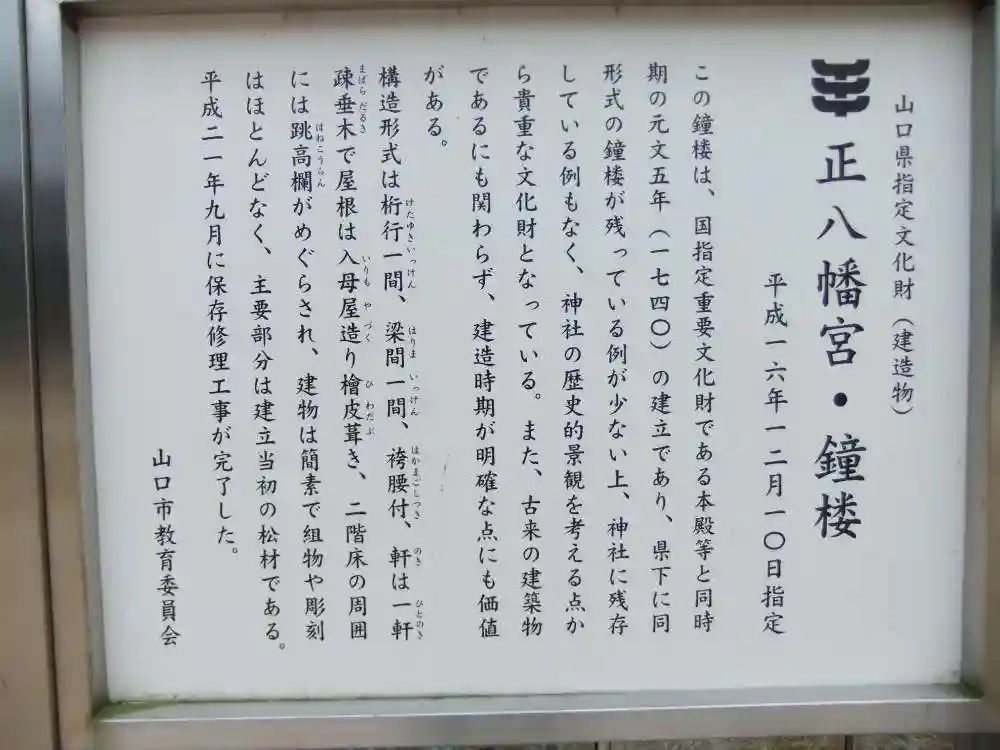 山口県指定文化財（建造物）
正八幡宮・鐘楼
平成一六年一二月一〇日指定
この鐘楼は、国指定重要文化財である本殿等と同時
期の元文五年（一七四〇）の建立であり、県下に同
形式の鐘楼が残っている例が少ない上、神社に残存
している例もなく、神社の歴史的景観を考える点か
ら貴重な文化財となっている。また、古来の建築物
であるにも関わらず、建造時期が明確な点にも価値
がある。
構造形式は桁行一間、梁間一間、袴腰付、軒は一軒
疎垂木で屋根は入母屋造り檜皮葺き、二階床の周囲
には跳高欄がめぐらされ、建物は簡素で組物や彫刻
はほとんどなく、主要部分は建立当初の松材である。
平成二一年九月に保存修理工事が完了した。
山口市教育委員会